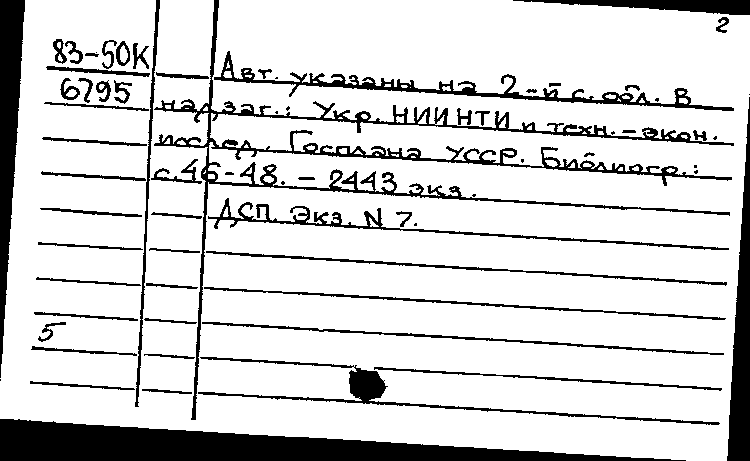 2
83-50К
6795
Авт. указаны на 2-й с. обл. В
надзаг.: Укр. НИИНТИ и техн.-экон.
исслед. Госплана УССР. Библиогр.:
с.46-48. - 2443 экз.
ДСП. Экз. N 7.
5